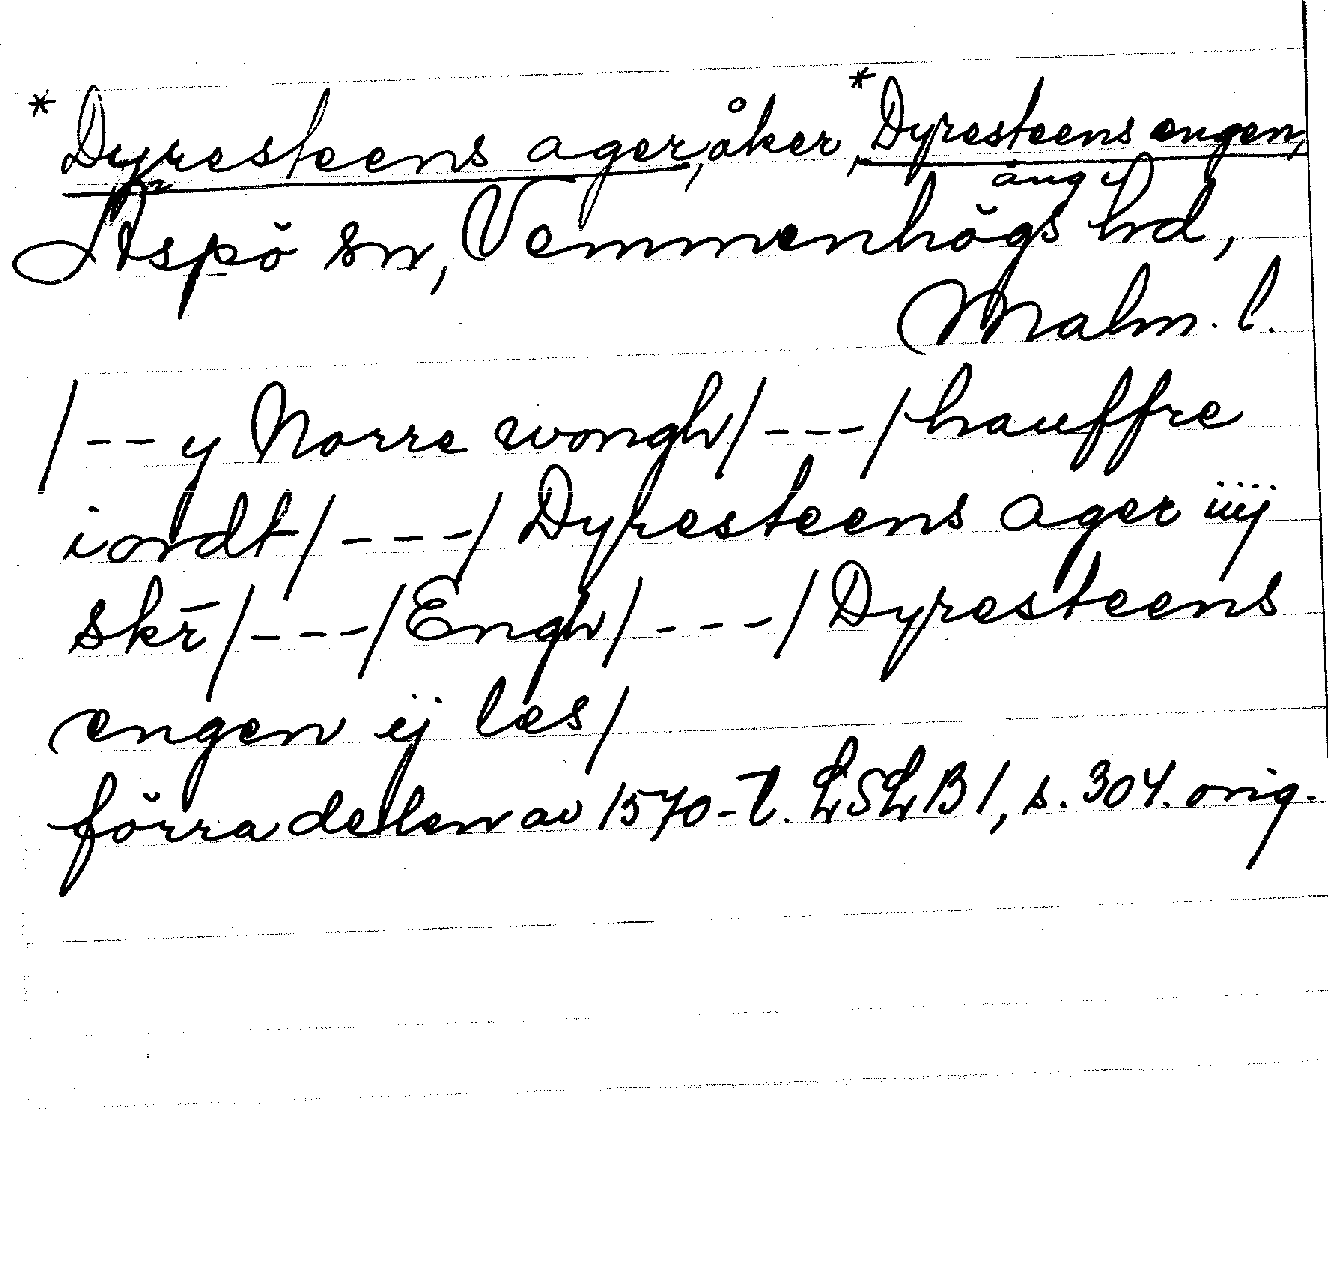 *Dyresteens ager, åker, *Dyresteens engen,
äng i
Äspö sn, Vemmenhögs hd,
Malm. l.
/--y Norre wongh/---/hauffre
iordt/---/Dyresteens ager iiij
skr̄/---/Engh/---/Dyresteens
engen ij læs/
förra delen av 1570-t. LSLB1, s. 304. orig.